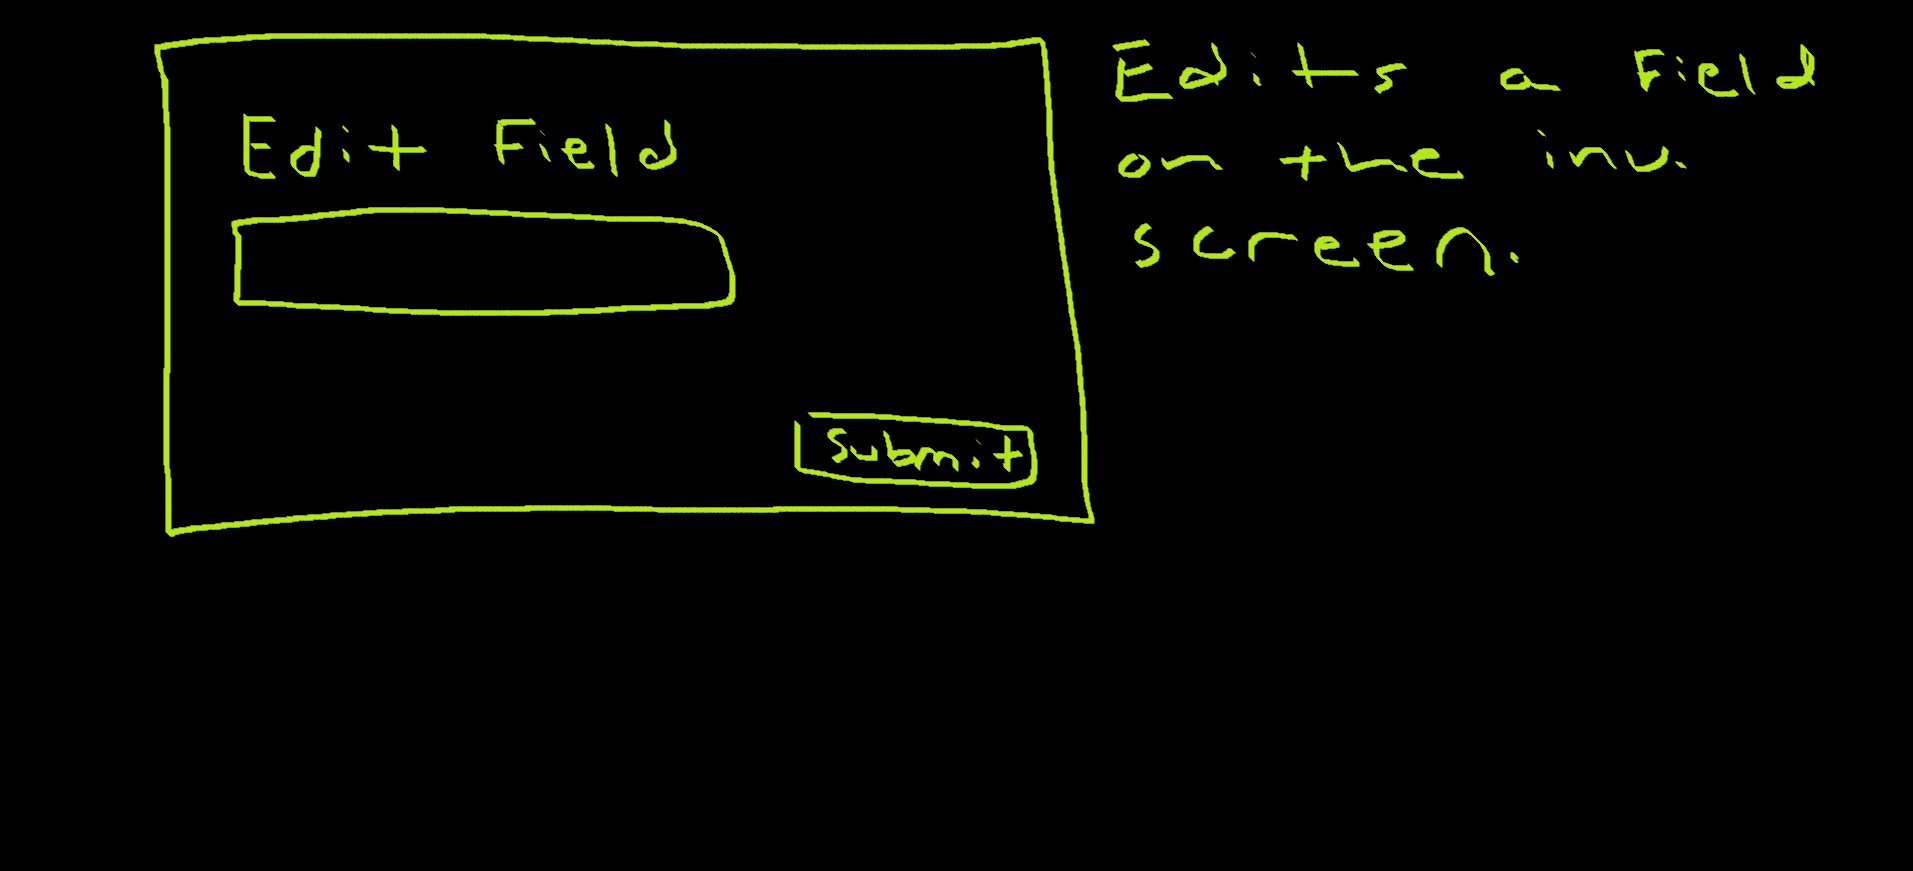 Edit Field
Submit
Edits a Field
on the inv.
screen.